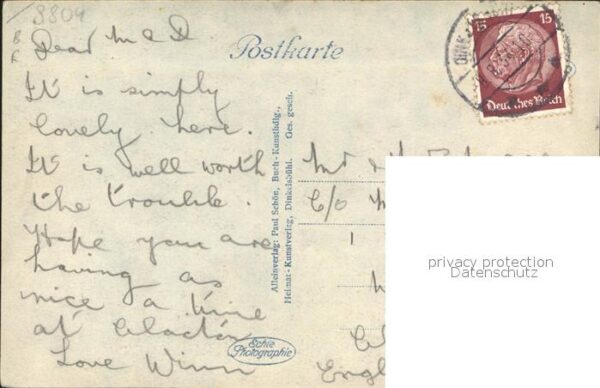 3804
Dear M & D
It is simply
lovely here.
It is well worth
the trouble.
Hope you are
having as
nice a time
at Clacton
Love Winn
Postkarte
Alleinverlag: Paul Schön, Buch-Kunsthdlg.,
Heimat-Kunstverlag, Dinkelsbühl. Ges. gesch.
Echte
Photographie
15 15
Deutsches Reich
Mr &
C/o
Engl
privacy protection
Datenschutz